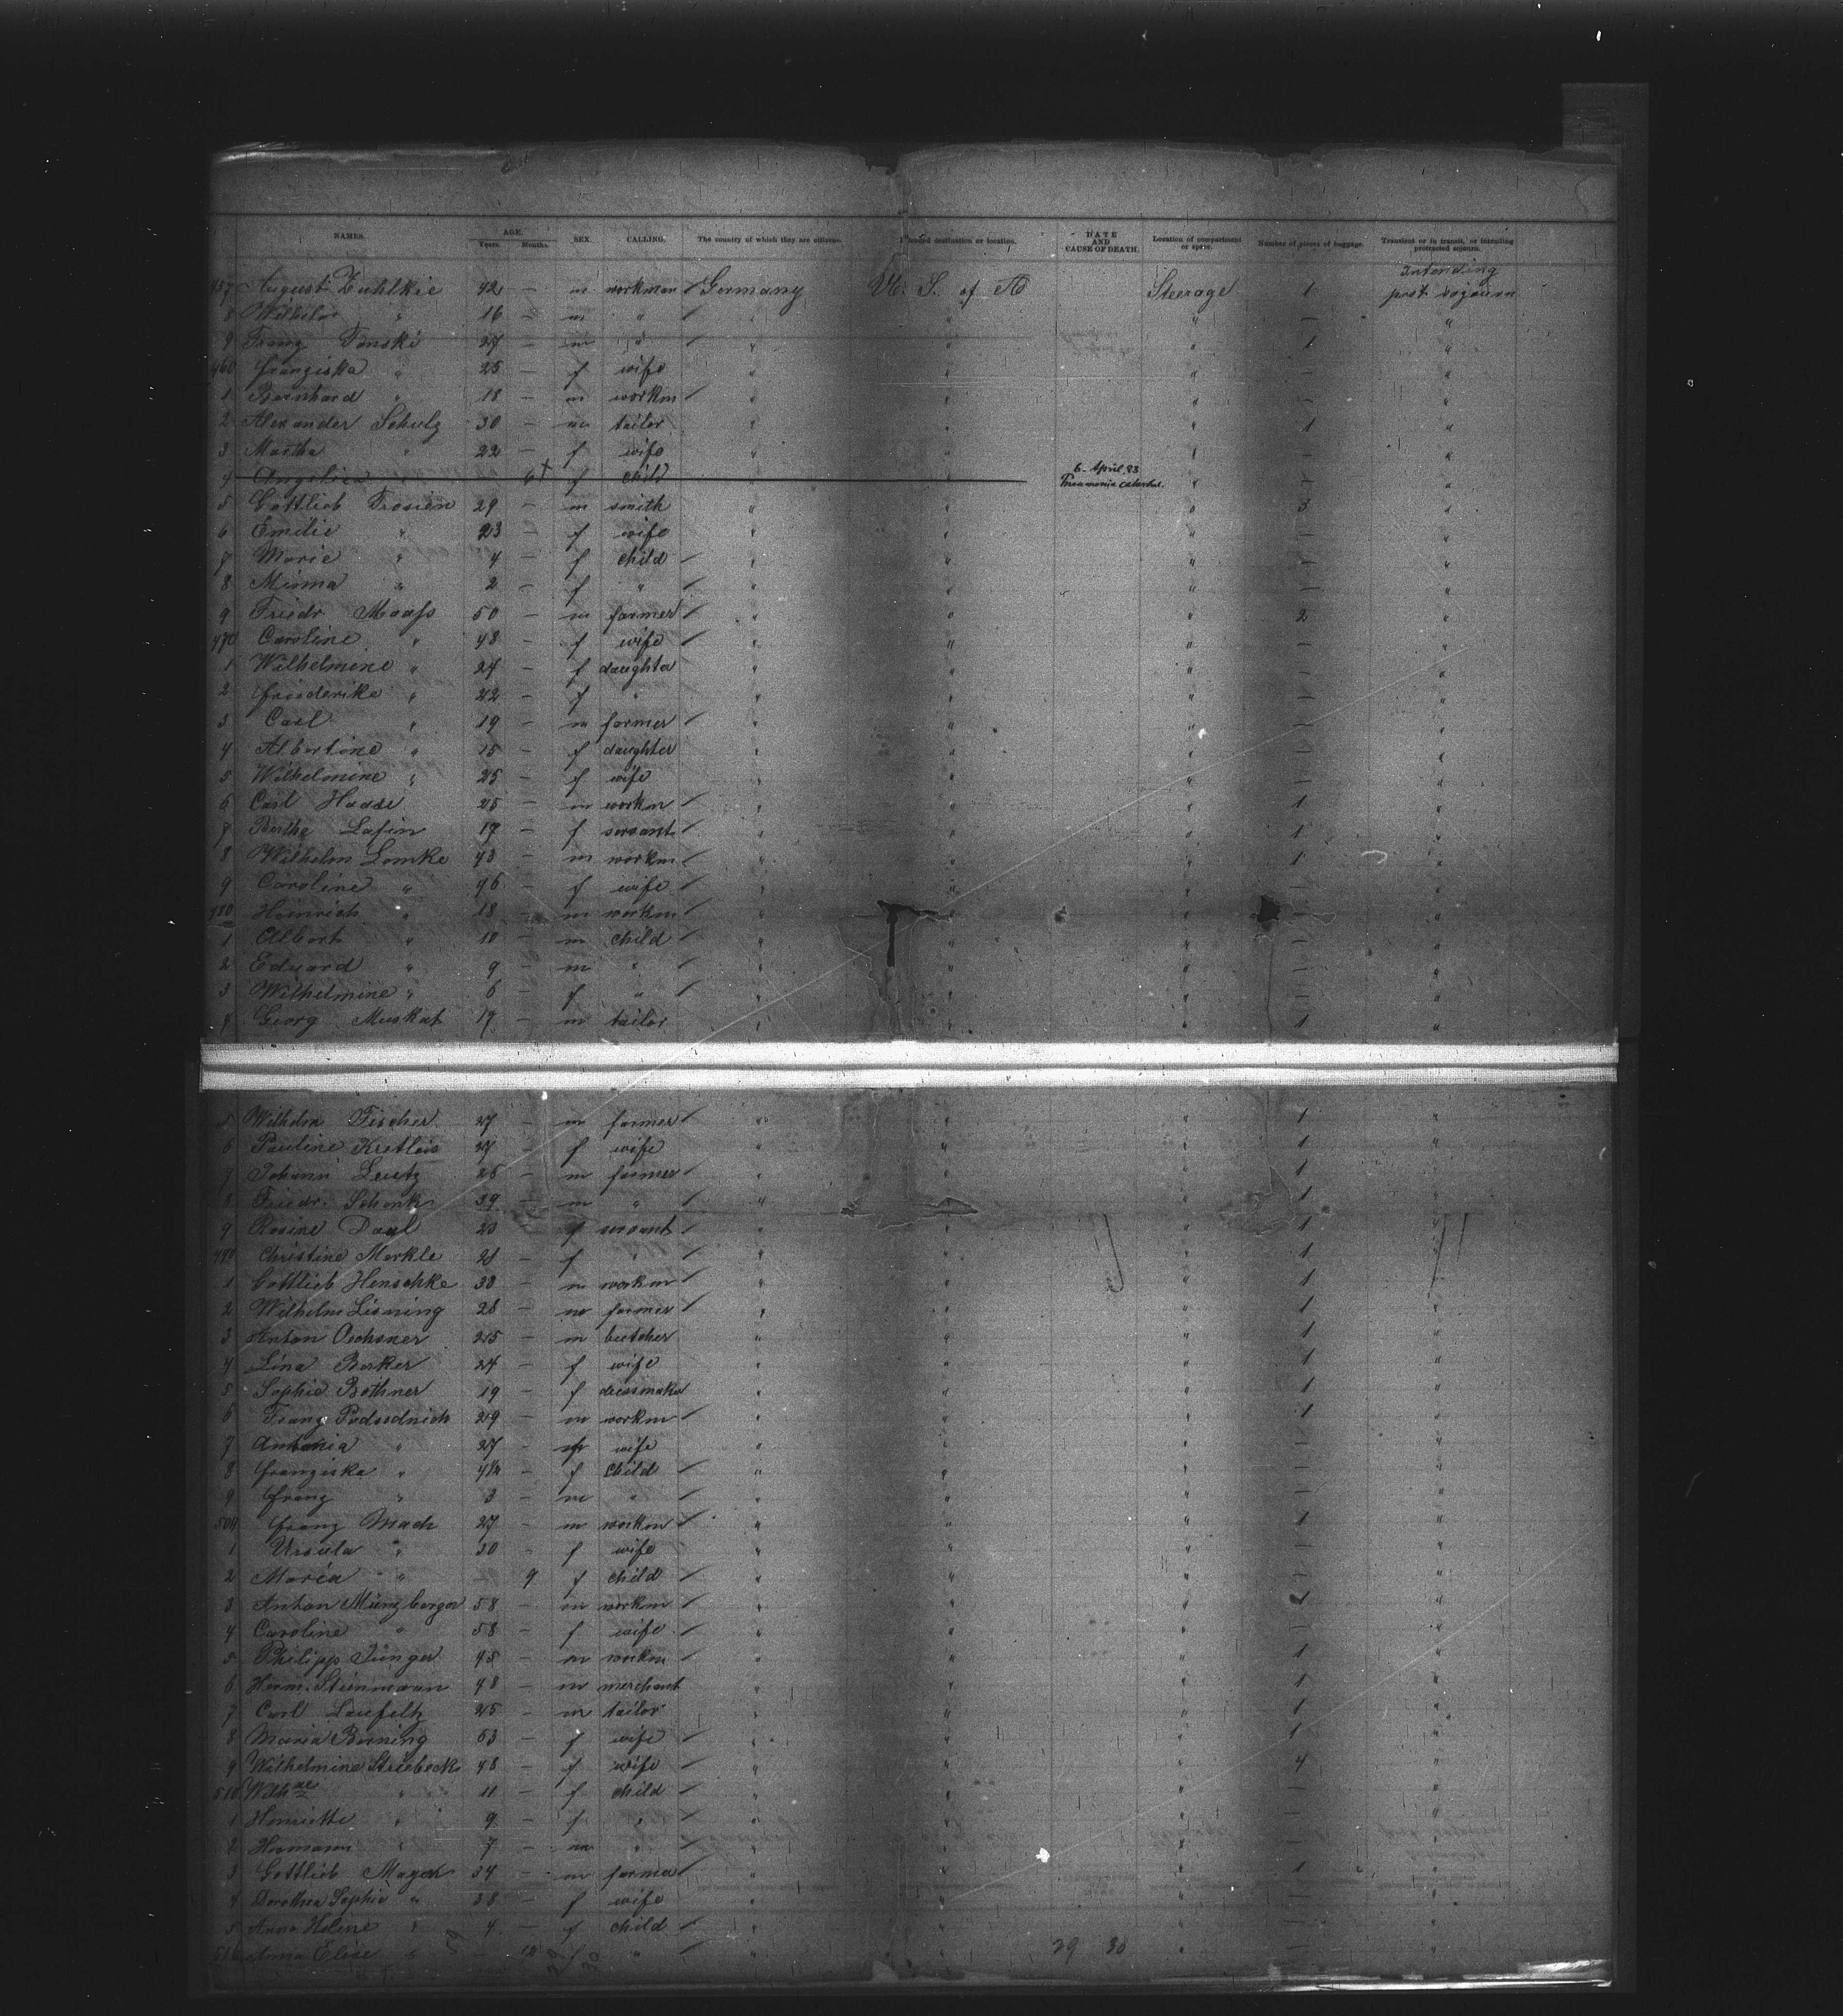 NAMES. AGE. Years. Months. SEX. CALLING. The country of which they are citizens. Intended destination or location. DATE AND CAUSE OF DEATH. Location of compartment or space. Number of pieces of baggage. Transient or in transit, or intending protracted sojourn.
457 August Zuhlkie 42 — m workman Germany U. S. of A Steerage 1 Intending prot. sojourn
8 Wilhelm " 16 — m " " " " — "
9 Franz Tonski 27 — m " " " " 1 "
460 Franziska " 25 — f wife " " " — "
1 Bernhard " 18 — m workm " " " — "
2 Alexander Schulz 30 — m tailor " " " 1 "
3 Martha " 22 — f wife " " " — "
4 Angelica " 6 f child " " 6. April 83 Pneumonia catarrhal. " — "
5 Gottlieb Frosien 29 — m smith " " " 3 "
6 Emilie " 23 — f wife " " " — "
7 Marie " 4 — f child " " " — "
8 Minna " 2 — f " " " " — "
9 Friedr Maaſs 50 — m farmer " " " 2 "
470 Caroline " 48 — f wife " " " — "
1 Wilhelmine " 24 — f daughter " " " — "
2 Friederike " 22 — f " " " " — "
3 Carl " 19 — m farmer " " " — "
4 Albertine " 15 — f daughter " " " — "
5 Wilhelmine " 25 — f wife " " " — "
6 Carl Haase 25 — m workm " " " 1 "
7 Berthe Lafin 17 — f servant " " " 1 "
8 Wilhelm Lemke 43 — m workm " " " 1 "
9 Caroline " 46 — f wife " " " — "
480 Heinrich " 18 — m workm " " " — "
1 Albert " 10 — m child " " " — "
2 Eduard " 9 — m " " " " — "
3 Wilhelmine " 6 — f " " " " — "
4 Georg Muskat 17 — m tailor " " " 1 "
5 Wilhelm Fischer 27 — m farmer " " " 1 "
6 Pauline Kretlois 27 — f wife " " " 1 "
7 Johann Leutz 26 — m farmer " " " 1 "
8 Friedr. Schenk 39 — m " " " " 1 "
9 Rosine Daal 20 — f servant " " " 1 "
490 Christine Merkle 21 — f " " " " 1 "
1 Gottlieb Henschke 33 — m workm " " " 1 "
2 Wilhelm Lisning 28 — m farmer " " " 1 "
3 Anton Oechsner 25 — m butcher " " " 1 "
4 Lina Barker 24 — f wife " " " 1 "
5 Sophie Bothner 19 — f dressmaker " " " 1 "
6 Franz Podsednich 29 — m workm " " " 1 "
7 Antonia " 27 — f wife " " " — "
8 Franziska " 4½ — f child " " " — "
9 Franz " 3 — m " " " " — "
500 Franz Mach 27 — m workm " " " 1 "
1 Ursula " 30 — f wife " " " — "
2 Maria " — 9 f child " " " — "
3 Anton Münzberger 58 — m workm " " " 1 "
4 Caroline " 58 — f wife " " " — "
5 Philipp Jünger 45 — m workm " " " 1 "
6 Herm. Steinmann 48 — m merchant " " " 1 "
7 Carl Laufeltz 25 — m tailor " " " 1 "
8 Maria Berning 53 — f wife " " " 1 "
9 Wilhelmine Striebeck 48 — f wife " " " 4 "
510 Wilhne " 11 — f child " " " — "
1 Henriette " 9 — f " " " " — "
2 Hermann " 7 — m " " " " — "
3 Gottlieb Mayer 34 — m farmer " " " 1 "
4 Dorothea Sophie " 38 — f wife " " " — "
5 Anna Helene " 4 — f child " " " — "
516 Anna Elise " — 10 f " " " " — "
29 30